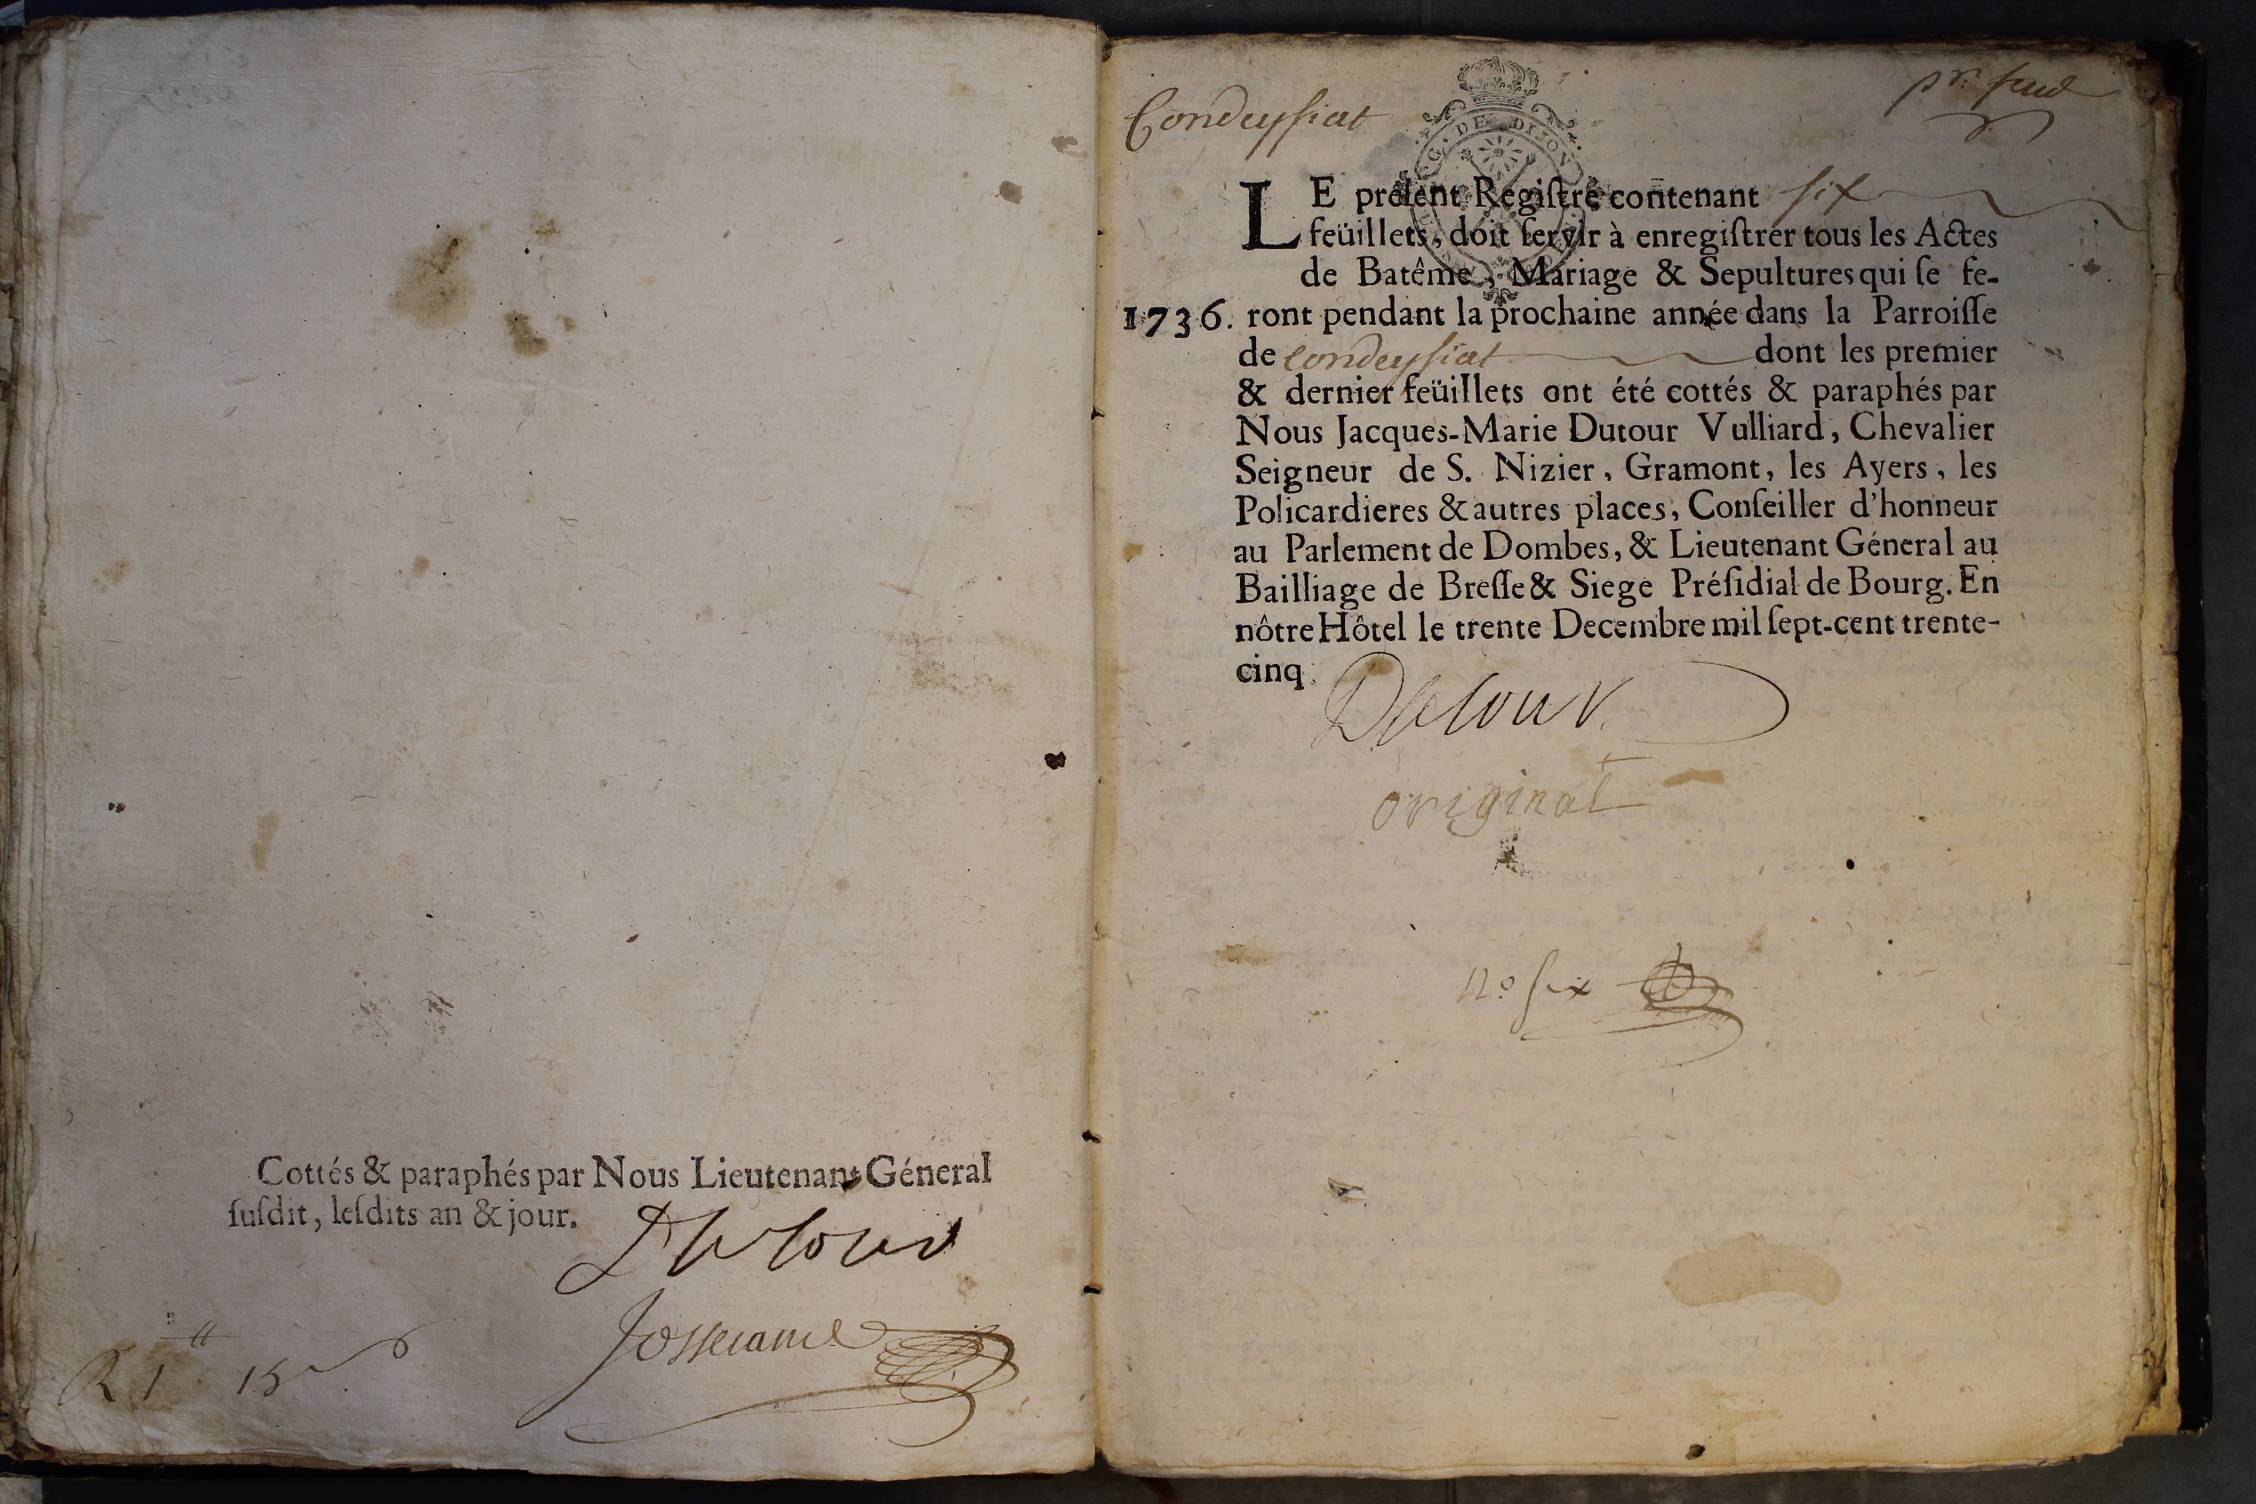 Cottés & paraphés par Nous Lieutenant Géneral
ſuſdit, leſdits an & jour.
Dutour
Josserand
R 1 ₶ 15 s
Condeyſiat
pr. feuil
G. DE DIJON
LE préſent Regiſtre conten̄ant ſix
feüillets, doit ſervir à enregiſtrer tous les Actes
de Batême, Mariage & Sepultures qui ſe fe-
1736. ront pendant la prochaine année dans la Parroiſſe
de Condeyſiat dont les premier
& dernier feüillets ont été cottés & paraphés par
Nous Jacques-Marie Dutour Vulliard, Chevalier
Seigneur de S. Nizier, Gramont, les Ayers, les
Policardieres & autres places, Conſeiller d'honneur
au Parlement de Dombes, & Lieutenant Géneral au
Bailliage de Breſſe & Siege Préſidial de Bourg. En
nôtre Hôtel le trente Decembre mil ſept-cent trente-
cinq.
Dutour
original
n.º ſix